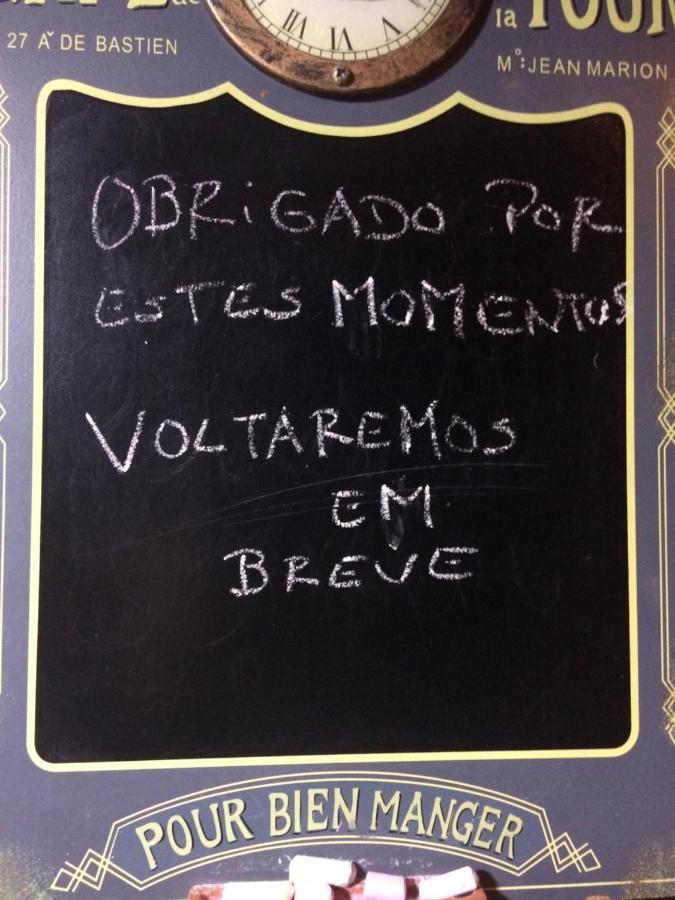 la TOUR
27 Av DE BASTIEN
Mo: JEAN MARION
OBRiGADO POR
ESTES MOMENTOS
VOLTAREMOS
EM
BREVE
POUR BIEN MANGER